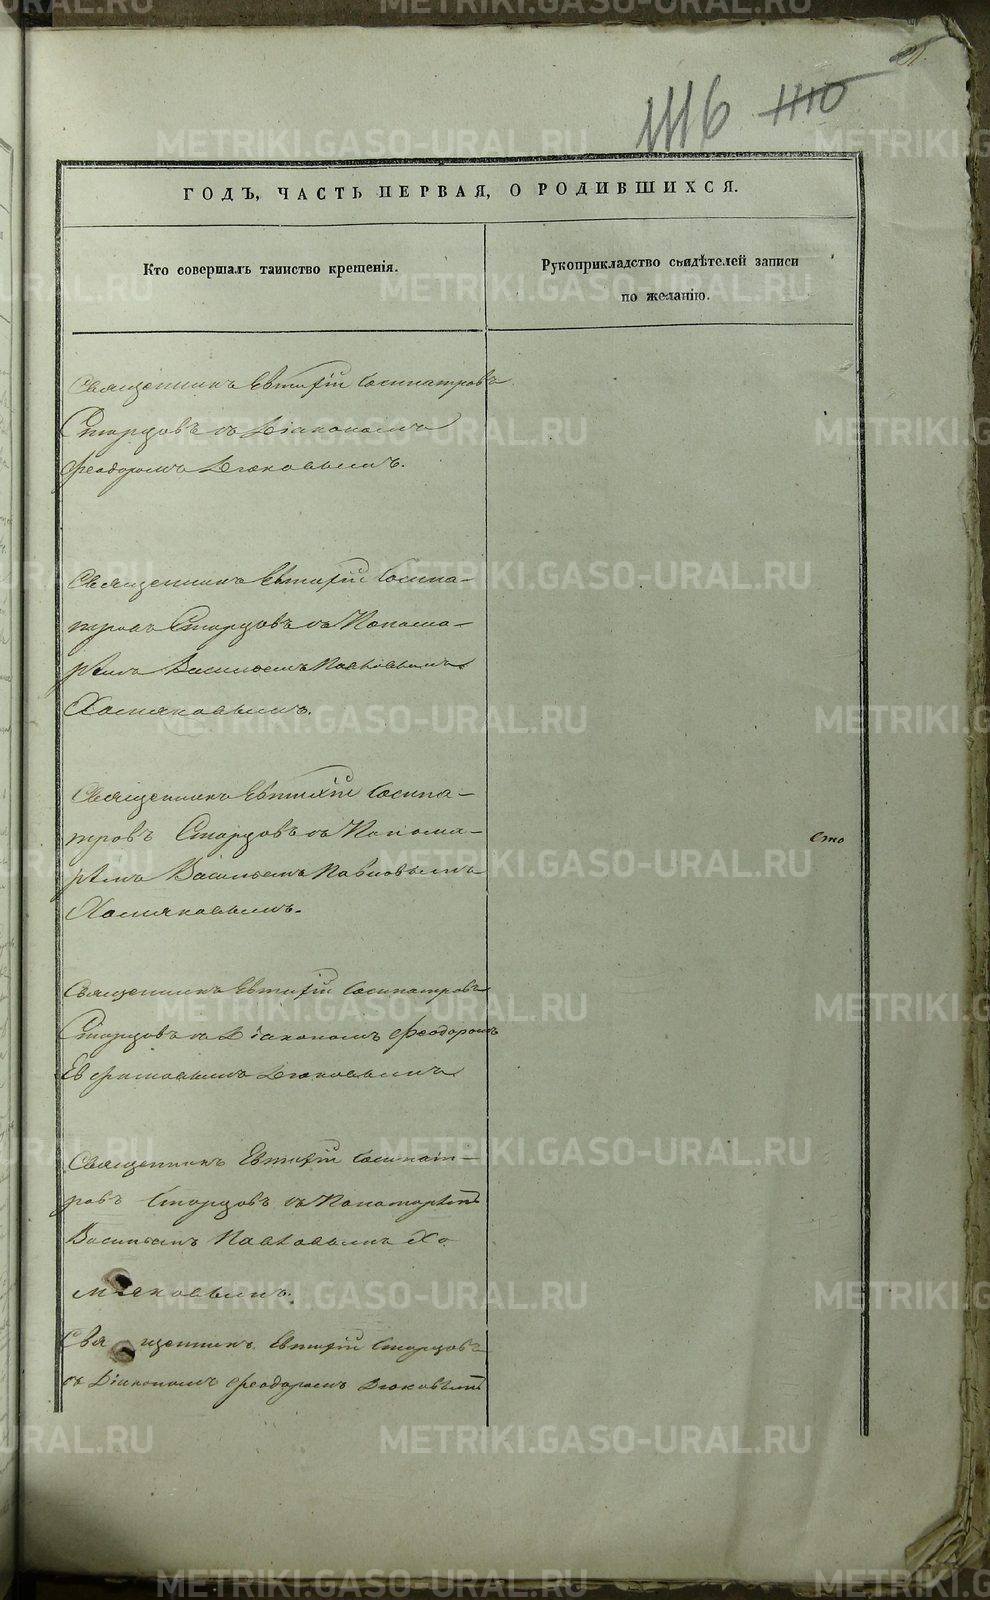 1116 1110
ГОДЪ, ЧАСТЬ ПЕРВАЯ, О РОДИВШИХСЯ.
Кто совершалъ таинство крещенія.
Рукоприкладство свидѣтелей записи
по желанію.
Священникъ Евтихій Сосипатровъ
Старцовъ съ Діакономъ
Феодоромъ Дюковымъ.
Священникъ Евтихій Сосипа-
тровъ Старцовъ съ Понома-
ремъ Васильемъ Павловымъ
Хомяковымъ.
Священникъ Евтихій Сосипа-
тровъ Старцовъ съ Понома-
ремъ Васильемъ Павловымъ
Хомяковымъ.
Священникъ Евтихій Сосипатровъ
Старцовъ съ Діакономъ Феодоромъ
Дюковымъ
Священникъ Евтихій Сосипат-
ровъ Старцовъ съ Пономаремъ
Васильемъ Павловымъ Хо
мяковымъ.
Священникъ Евтихій Старцовъ
съ Діакономъ Феодоромъ Дюковымъ
METRIKI.GASO-URAL.RU